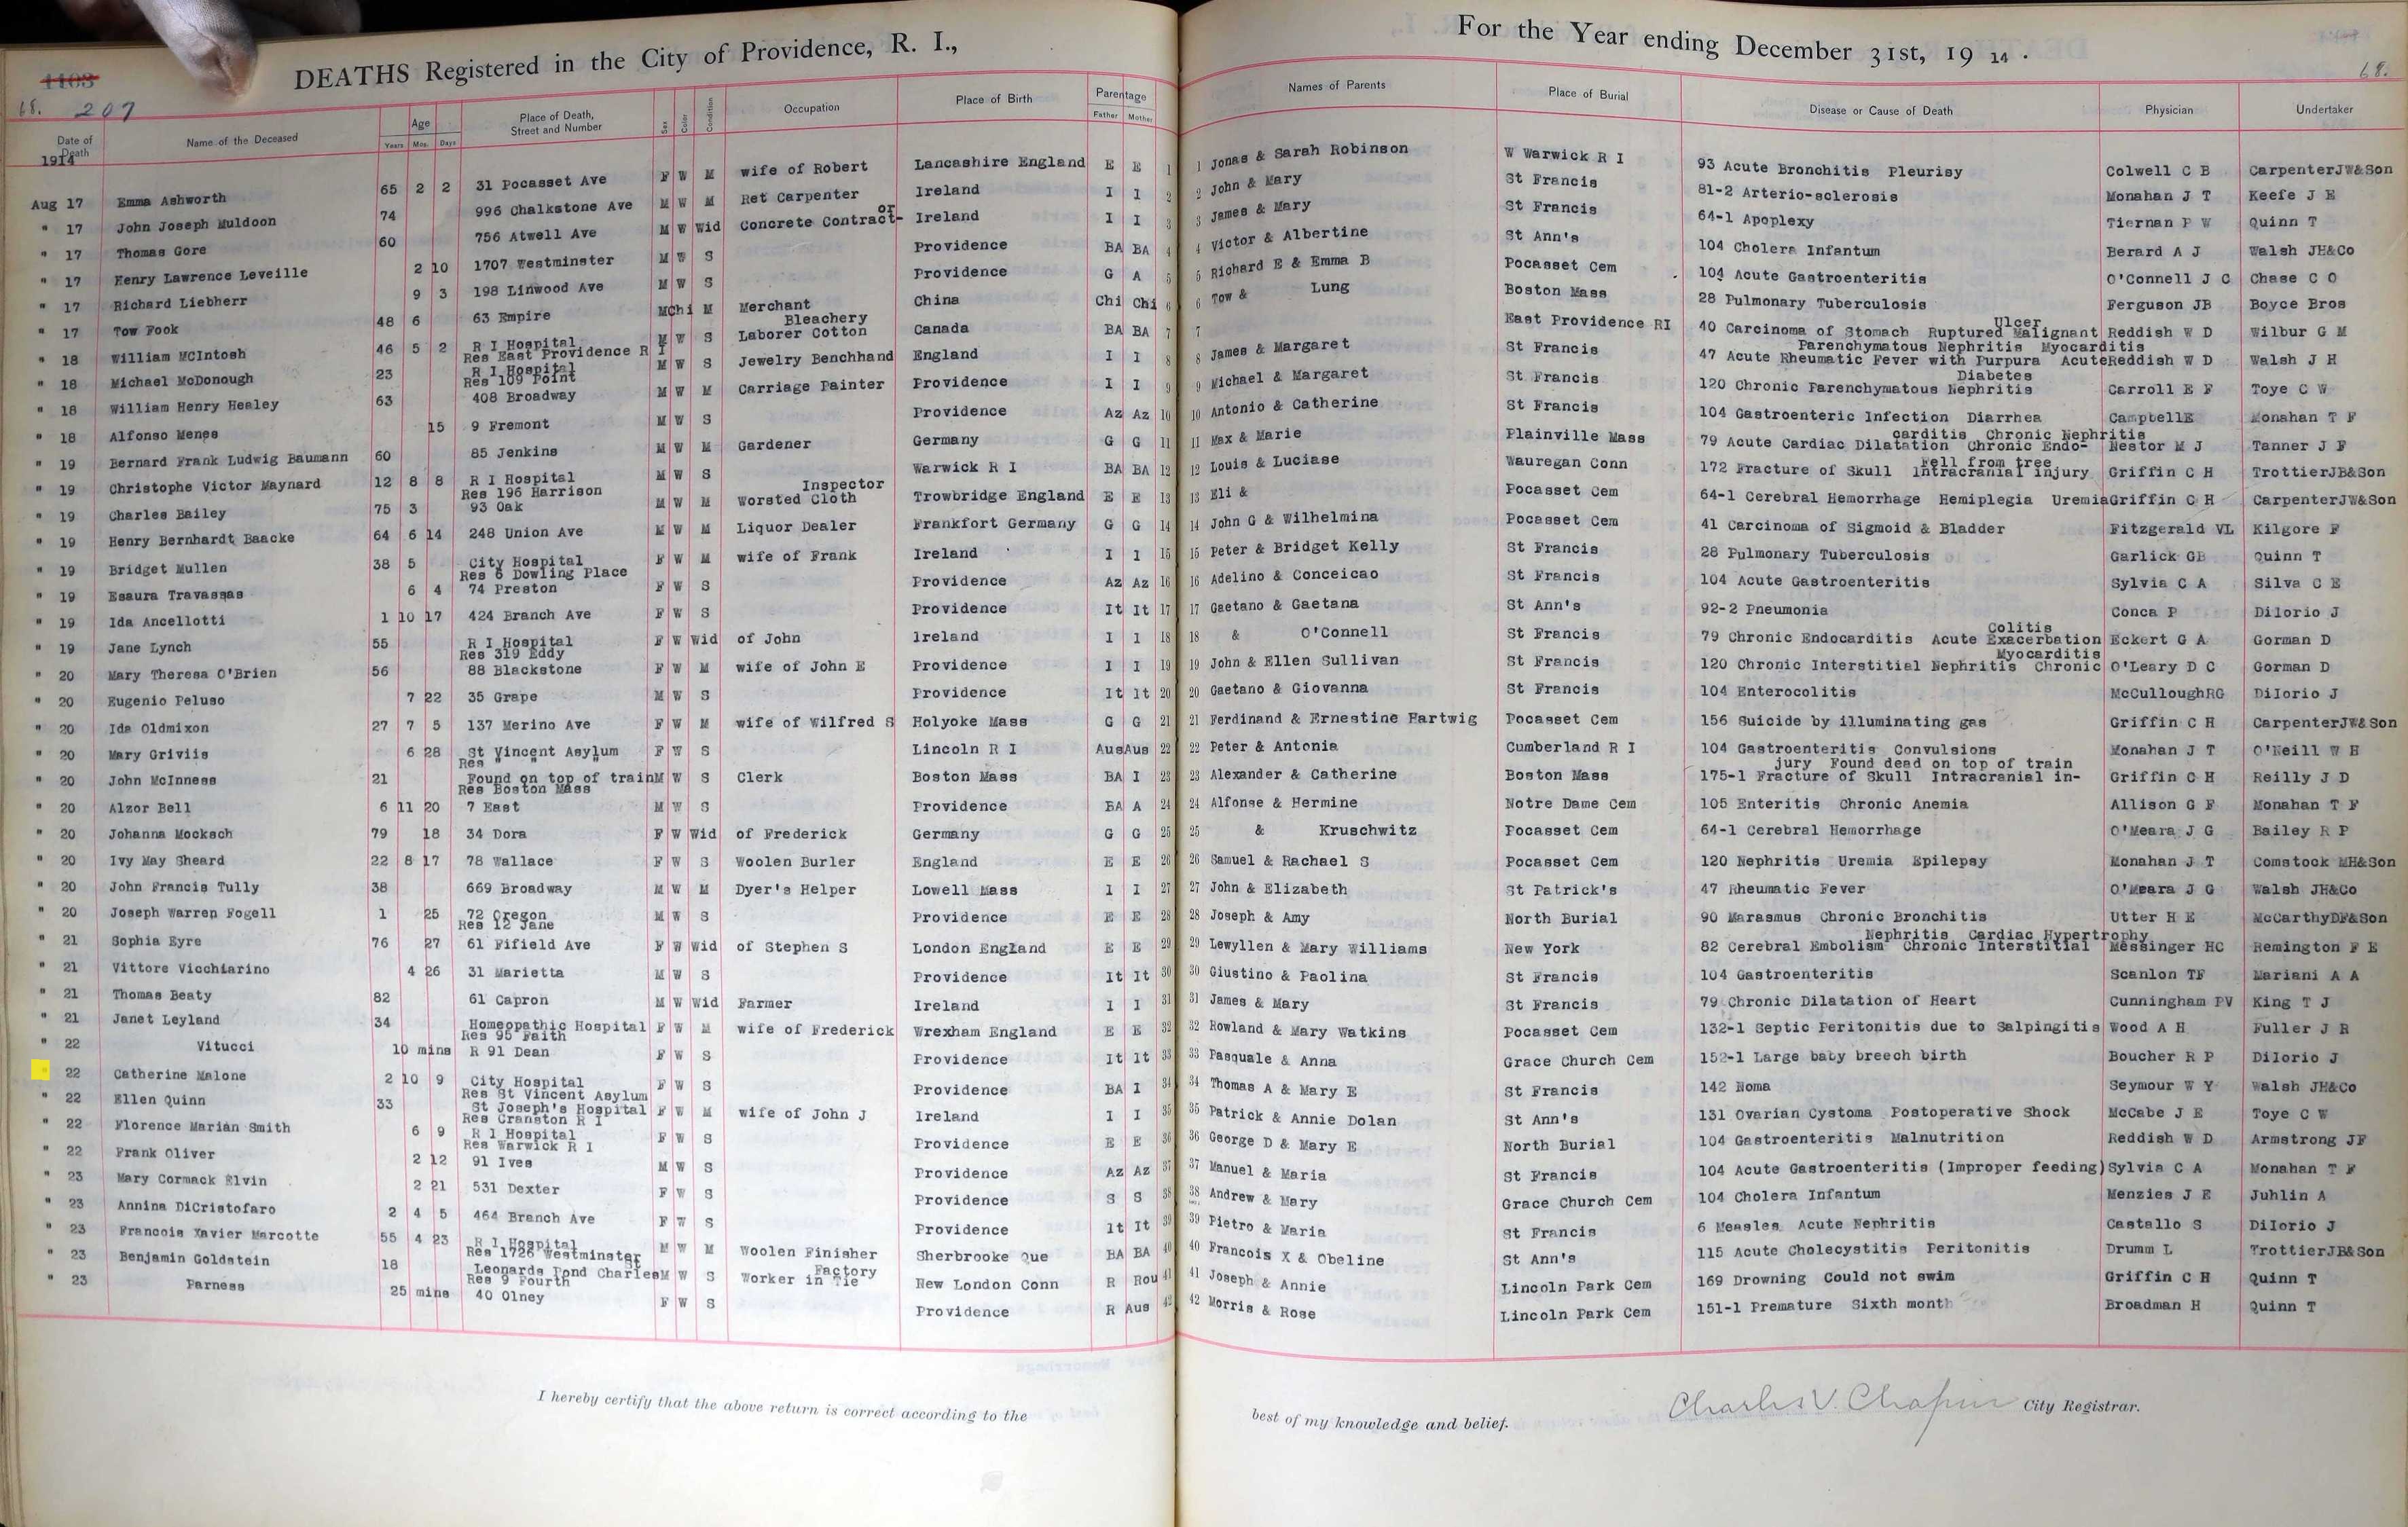 DEATHS Registered in the City of Providence, R. I., For the Year ending December 31st, 19 14.
1103
68. 207 68.
Date of Death Name of the Deceased Age Years Mos. Days Place of Death, Street and Number Sex Color Condition Occupation Place of Birth Parentage Father Mother Names of Parents Place of Burial Disease or Cause of Death Physician Undertaker
1914
Aug 17 Emma Ashworth 65 2 2 31 Pocasset Ave F W M wife of Robert Lancashire England E E 1 1 Jonas & Sarah Robinson W Warwick R I 93 Acute Bronchitis Pleurisy Colwell C B CarpenterJW&Son
" 17 John Joseph Muldoon 74 996 Chalkstone Ave M W M Ret Carpenter Ireland I I 2 2 John & Mary St Francis 81-2 Arterio-sclerosis Monahan J T Keefe J E
" 17 Thomas Gore 60 756 Atwell Ave M W Wid Concrete Contract-or Ireland I I 3 3 James & Mary St Francis 64-1 Apoplexy Tiernan P W Quinn T
" 17 Henry Lawrence Leveille 2 10 1707 Westminster M W S Providence BA BA 4 4 Victor & Albertine St Ann's 104 Cholera Infantum Berard A J Walsh JH&Co
" 17 Richard Liebherr 9 3 198 Linwood Ave M W S Providence G A 5 5 Richard E & Emma B Pocasset Cem 104 Acute Gastroenteritis O'Connell J C Chase C O
" 17 Tow Fook 48 6 63 Empire M Chi M Merchant China Chi Chi 6 6 Tow & Lung Boston Mass 28 Pulmonary Tuberculosis Ferguson JB Boyce Bros
" 18 William McIntosh 46 5 2 R I Hospital Res East Providence R I M W S Laborer Cotton Bleachery Canada BA BA 7 7 East Providence RI 40 Carcinoma of Stomach Ruptured Malignant Ulcer Reddish W D Wilbur G M
" 18 Michael McDonough 23 R I Hospital Res 109 Point M W S Jewelry Benchhand England I I 8 8 James & Margaret St Francis 47 Acute Rheumatic Fever with Purpura Acute Parenchymatous Nephritis Myocarditis Reddish W D Walsh J H
" 18 William Henry Healey 63 408 Broadway M W M Carriage Painter Providence I I 9 9 Michael & Margaret St Francis 120 Chronic Parenchymatous Nephritis Diabetes Carroll E F Toye C W
" 18 Alfonso Menes 15 9 Fremont M W S Providence Az Az 10 10 Antonio & Catherine St Francis 104 Gastroenteric Infection Diarrhea CampbellE Monahan T F
" 19 Bernard Frank Ludwig Baumann 60 85 Jenkins M W M Gardener Germany G G 11 11 Max & Marie Plainville Mass 79 Acute Cardiac Dilatation Chronic Endo-carditis Chronic Nephritis Nestor M J Tanner J F
" 19 Christophe Victor Maynard 12 8 8 R I Hospital Res 196 Harrison M W S Warwick R I BA BA 12 12 Louis & Luciase Wauregan Conn 172 Fracture of Skull Intracranial injury Fell from tree Griffin C H TrottierJB&Son
" 19 Charles Bailey 75 3 93 Oak M W M Inspector Worsted Cloth Trowbridge England E E 13 13 Eli & Pocasset Cem 64-1 Cerebral Hemorrhage Hemiplegia Uremia Griffin C H CarpenterJW&Son
" 19 Henry Bernhardt Baacke 64 6 14 248 Union Ave M W M Liquor Dealer Frankfort Germany G G 14 14 John G & Wilhelmina Pocasset Cem 41 Carcinoma of Sigmoid & Bladder Fitzgerald VL Kilgore F
" 19 Bridget Mullen 38 5 City Hospital Res 6 Dowling Place F W M wife of Frank Ireland I I 15 15 Peter & Bridget Kelly St Francis 28 Pulmonary Tuberculosis Garlick GB Quinn T
" 19 Esaura Travassas 6 4 74 Preston F W S Providence Az Az 16 16 Adelino & Conceicao St Francis 104 Acute Gastroenteritis Sylvia C A Silva C E
" 19 Ida Ancellotti 1 10 17 424 Branch Ave F W S Providence It It 17 17 Gaetano & Gaetana St Ann's 92-2 Pneumonia Conca P DiIorio J
" 19 Jane Lynch 55 R I Hospital Res 319 Eddy F W Wid of John Ireland I I 18 18 & O'Connell St Francis 79 Chronic Endocarditis Acute Exacerbation Colitis Eckert G A Gorman D
" 20 Mary Theresa O'Brien 56 88 Blackstone F W M wife of John E Providence I I 19 19 John & Ellen Sullivan St Francis 120 Chronic Interstitial Nephritis Chronic Myocarditis O'Leary D C Gorman D
" 20 Eugenio Peluso 7 22 35 Grape M W S Providence It It 20 20 Gaetano & Giovanna St Francis 104 Enterocolitis McCulloughRG DiIorio J
" 20 Ida Oldmixon 27 7 5 137 Merino Ave F W M wife of Wilfred S Holyoke Mass G G 21 21 Ferdinand & Ernestine Hartwig Pocasset Cem 156 Suicide by illuminating gas Griffin C H CarpenterJW&Son
" 20 Mary Griviis 6 28 St Vincent Asylum Res " " F W S Lincoln R I Aus Aus 22 22 Peter & Antonia Cumberland R I 104 Gastroenteritis Convulsions Monahan J T O'Neill W H
" 20 John McInness 21 Found on top of train Res Boston Mass M W S Clerk Boston Mass BA I 23 23 Alexander & Catherine Boston Mass 175-1 Fracture of Skull Intracranial in-jury Found dead on top of train Griffin C H Reilly J D
" 20 Alzor Bell 6 11 20 7 East M W S Providence BA A 24 24 Alfonse & Hermine Notre Dame Cem 105 Enteritis Chronic Anemia Allison G F Monahan T F
" 20 Johanna Mocksch 79 18 34 Dora F W Wid of Frederick Germany G G 25 25 & Kruschwitz Pocasset Cem 64-1 Cerebral Hemorrhage O'Meara J G Bailey R P
" 20 Ivy May Sheard 22 8 17 78 Wallace F W S Woolen Burler England E E 26 26 Samuel & Rachael S Pocasset Cem 120 Nephritis Uremia Epilepsy Monahan J T Comstock MH&Son
" 20 John Francis Tully 38 669 Broadway M W M Dyer's Helper Lowell Mass I I 27 27 John & Elizabeth St Patrick's 47 Rheumatic Fever O'Meara J G Walsh JH&Co
" 20 Joseph Warren Fogell 1 25 72 Oregon Res 12 Jane M W S Providence E E 28 28 Joseph & Amy North Burial 90 Marasmus Chronic Bronchitis Utter H E McCarthyDF&Son
" 21 Sophia Eyre 76 27 61 Fifield Ave F W Wid of Stephen S London England E E 29 29 Lewyllen & Mary Williams New York 82 Cerebral Embolism Chronic Interstitial Nephritis Cardiac Hypertrophy Messinger HC Remington F E
" 21 Vittore Vicchiarino 4 26 31 Marietta M W S Providence It It 30 30 Giustino & Paolina St Francis 104 Gastroenteritis Scanlon TF Mariani A A
" 21 Thomas Beaty 82 61 Capron M W Wid Farmer Ireland I I 31 31 James & Mary St Francis 79 Chronic Dilatation of Heart Cunningham PV King T J
" 21 Janet Leyland 34 Homeopathic Hospital Res 95 Faith F W M wife of Frederick Wrexham England E E 32 32 Rowland & Mary Watkins Pocasset Cem 132-1 Septic Peritonitis due to Salpingitis Wood A H Fuller J R
" 22 Vitucci 10 mins R 91 Dean F W S Providence It It 33 33 Pasquale & Anna Grace Church Cem 152-1 Large baby breech birth Boucher R P DiIorio J
" 22 Catherine Malone 2 10 9 City Hospital Res St Vincent Asylum F W S Providence BA I 34 34 Thomas A & Mary E St Francis 142 Noma Seymour W Y Walsh JH&Co
" 22 Ellen Quinn 33 St Joseph's Hospital Res Cranston R I F W M wife of John J Ireland I I 35 35 Patrick & Annie Dolan St Ann's 131 Ovarian Cystoma Postoperative Shock McCabe J E Toye C W
" 22 Florence Marian Smith 6 9 R I Hospital Res Warwick R I F W S Providence E E 36 36 George D & Mary E North Burial 104 Gastroenteritis Malnutrition Reddish W D Armstrong JF
" 22 Frank Oliver 2 12 91 Ives M W S Providence Az Az 37 37 Manuel & Maria St Francis 104 Acute Gastroenteritis (Improper feeding) Sylvia C A Monahan T F
" 23 Mary Cormack Elvin 2 21 531 Dexter F W S Providence S S 38 38 Andrew & Mary Grace Church Cem 104 Cholera Infantum Menzies J E Juhlin A
" 23 Annina DiCristofaro 2 4 5 464 Branch Ave F W S Providence It It 39 39 Pietro & Maria St Francis 6 Measles Acute Nephritis Castallo S DiIorio J
" 23 Francois Xavier Marcotte 55 4 23 R I Hospital Res 1726 Westminster M W M Woolen Finisher Sherbrooke Que BA BA 40 40 Francois X & Obeline St Ann's 115 Acute Cholecystitis Peritonitis Drumm L TrottierJB&Son
" 23 Benjamin Goldstein 18 Leonards Pond Charles St Res 9 Fourth M W S Worker in Tie Factory New London Conn R Rou 41 41 Joseph & Annie Lincoln Park Cem 169 Drowning Could not swim Griffin C H Quinn T
" 23 Parness 25 mins 40 Olney F W S Providence R Aus 42 42 Morris & Rose Lincoln Park Cem 151-1 Premature Sixth month Broadman H Quinn T
I hereby certify that the above return is correct according to the best of my knowledge and belief. Charles V. Chapin City Registrar.